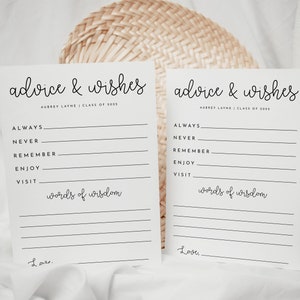 advice & wishes
AUBREY LAYNE | CLASS OF 20XX
ALWAYS
NEVER
REMEMBER
ENJOY
VISIT
words of wisdom
Love,
advice & wishes
AUBREY LAYNE | CLASS OF 20XX
ALWAYS
NEVER
REMEMBER
ENJOY
VISIT
words of wisdom
Love,